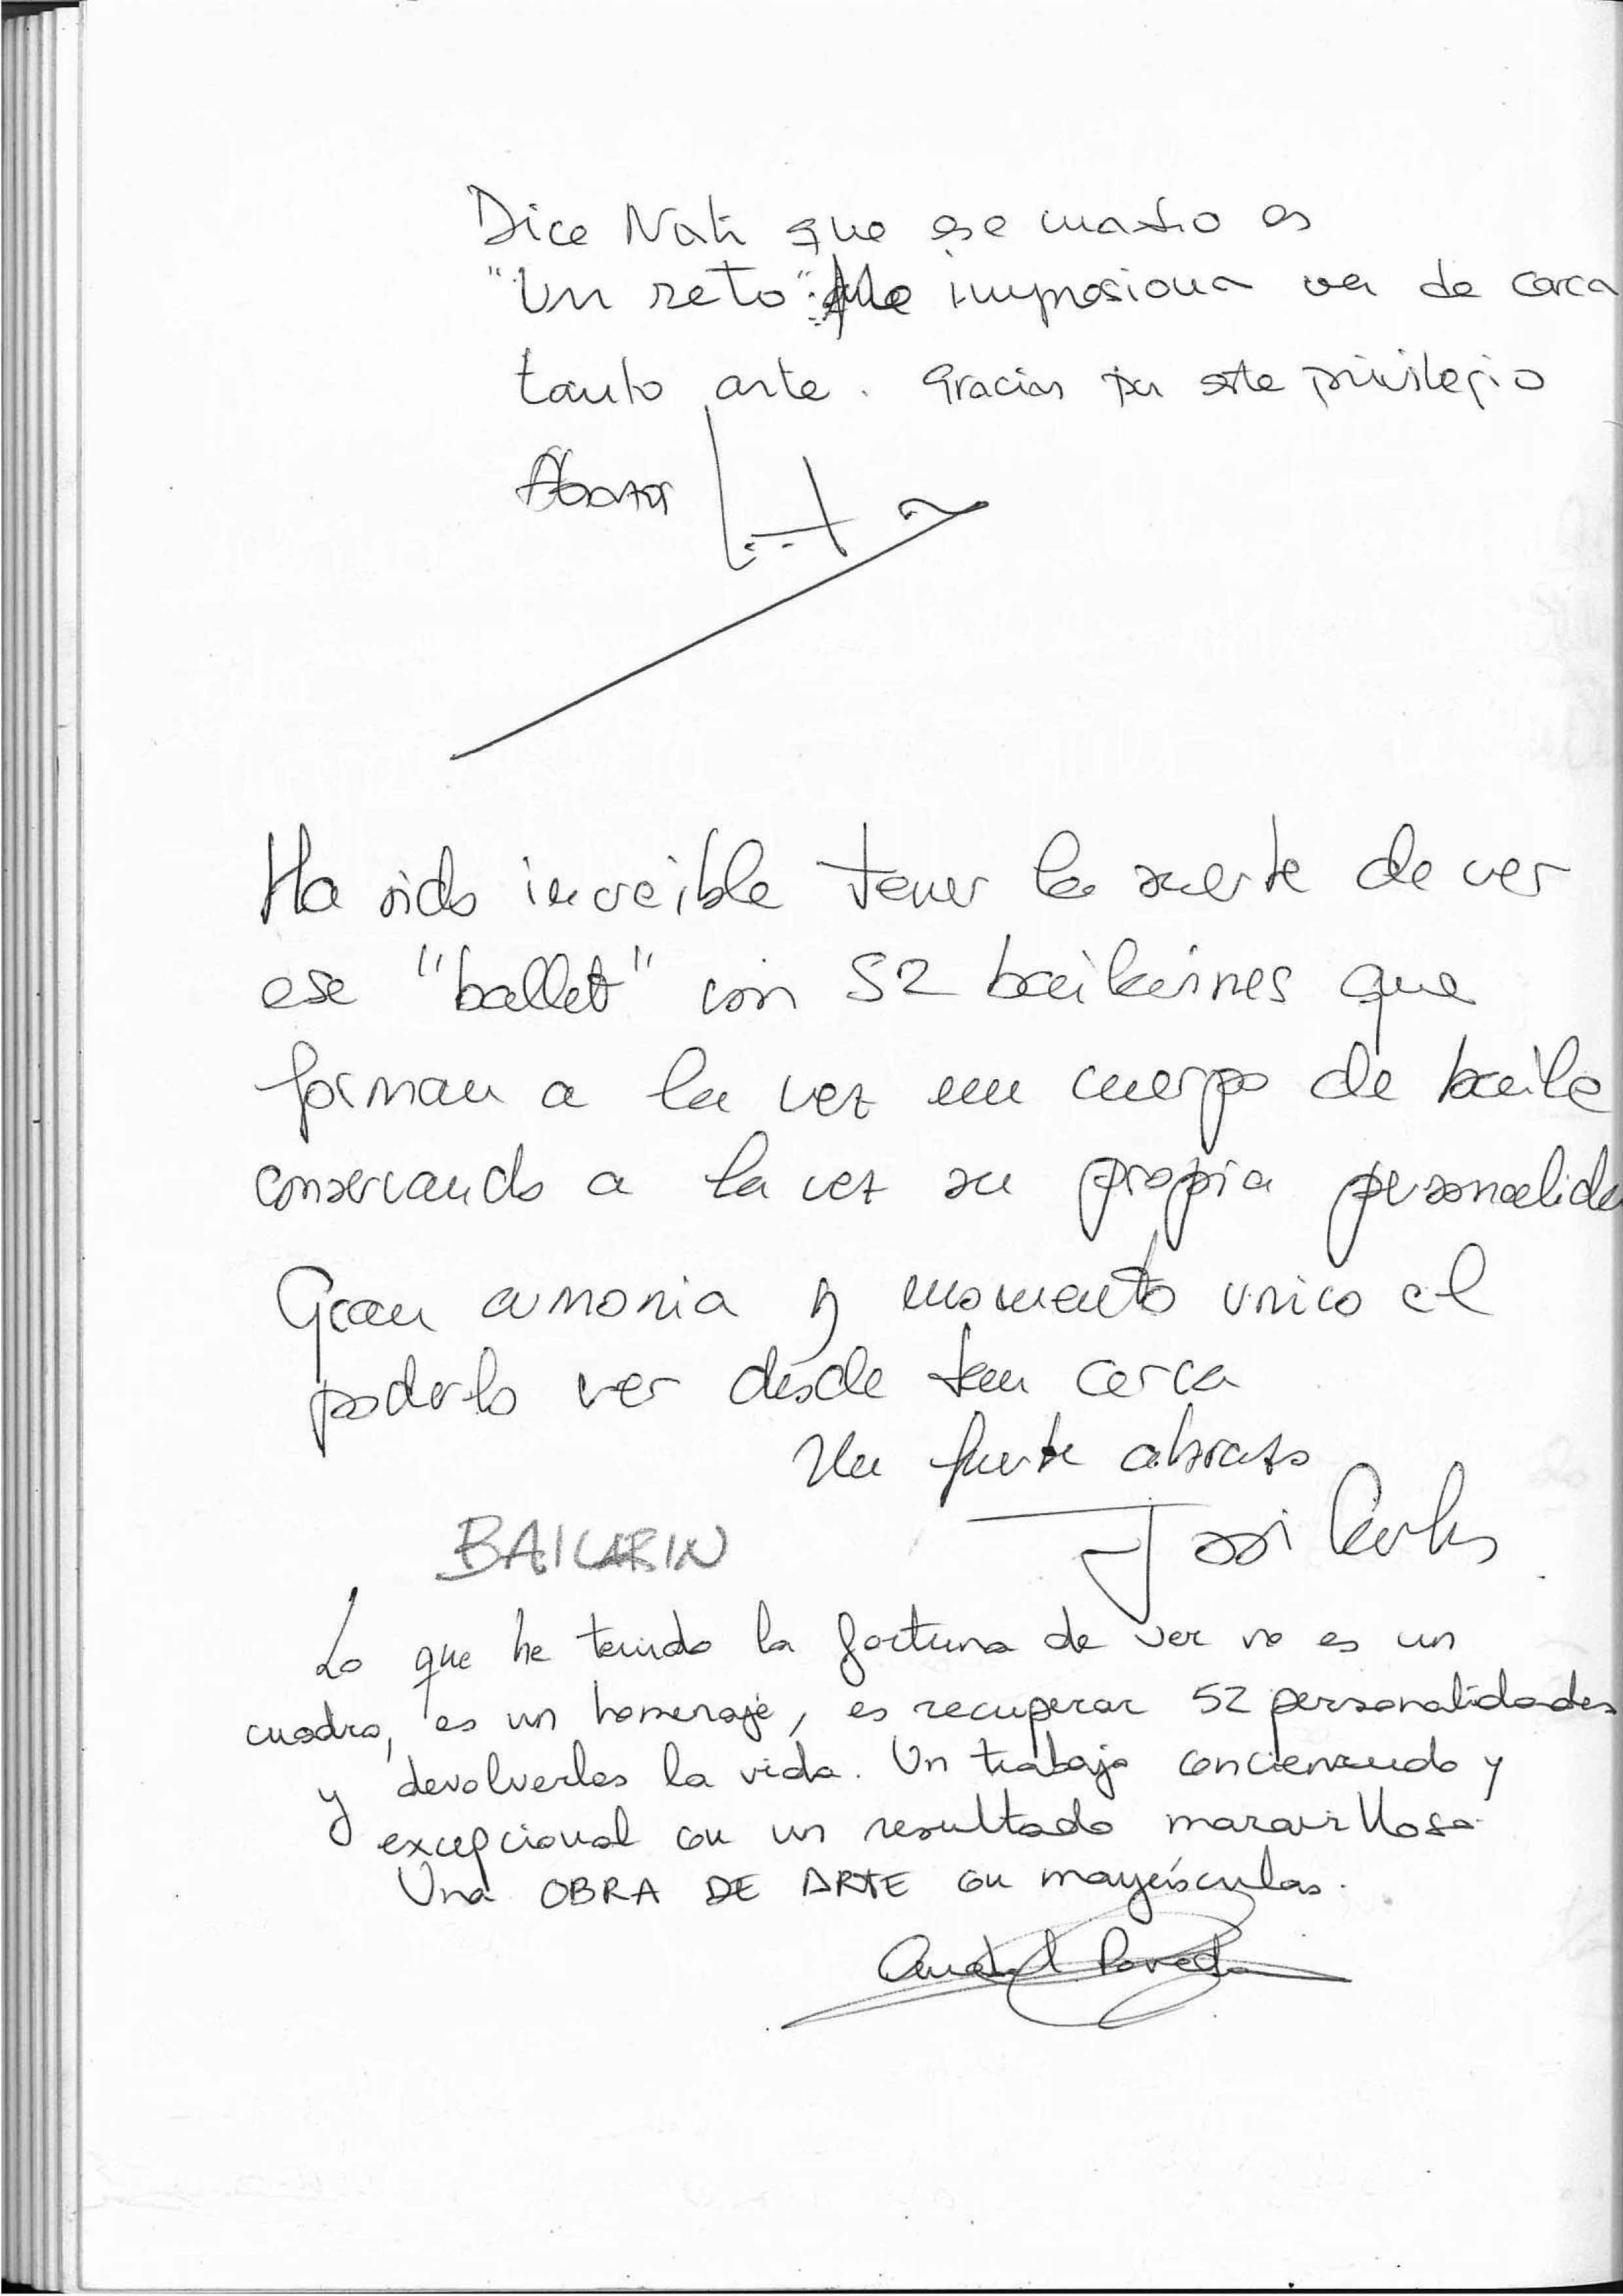 Dice Nati que ese cuadro es
"Un reto". Me impresiona ver de cerca
tanto arte. Gracias por este privilegio
Ha sido increible tener la suerte de ver
ese "ballet" con 52 bailarines que
forman a la vez un cuerpo de baile
conservando a la vez su propia personalida
Gran armonia y momento unico el
poderlo ver desde tan cerca
Un fuerte abrazo
BAILARIN
Lo que he tenido la fortuna de ver no es un
cuadro, es un homenaje, es recuperar 52 personalidades
y devolverles la vida. Un trabajo concienzudo y
excepcional con un resultado maravilloso.
Una OBRA DE ARTE con mayúsculas.